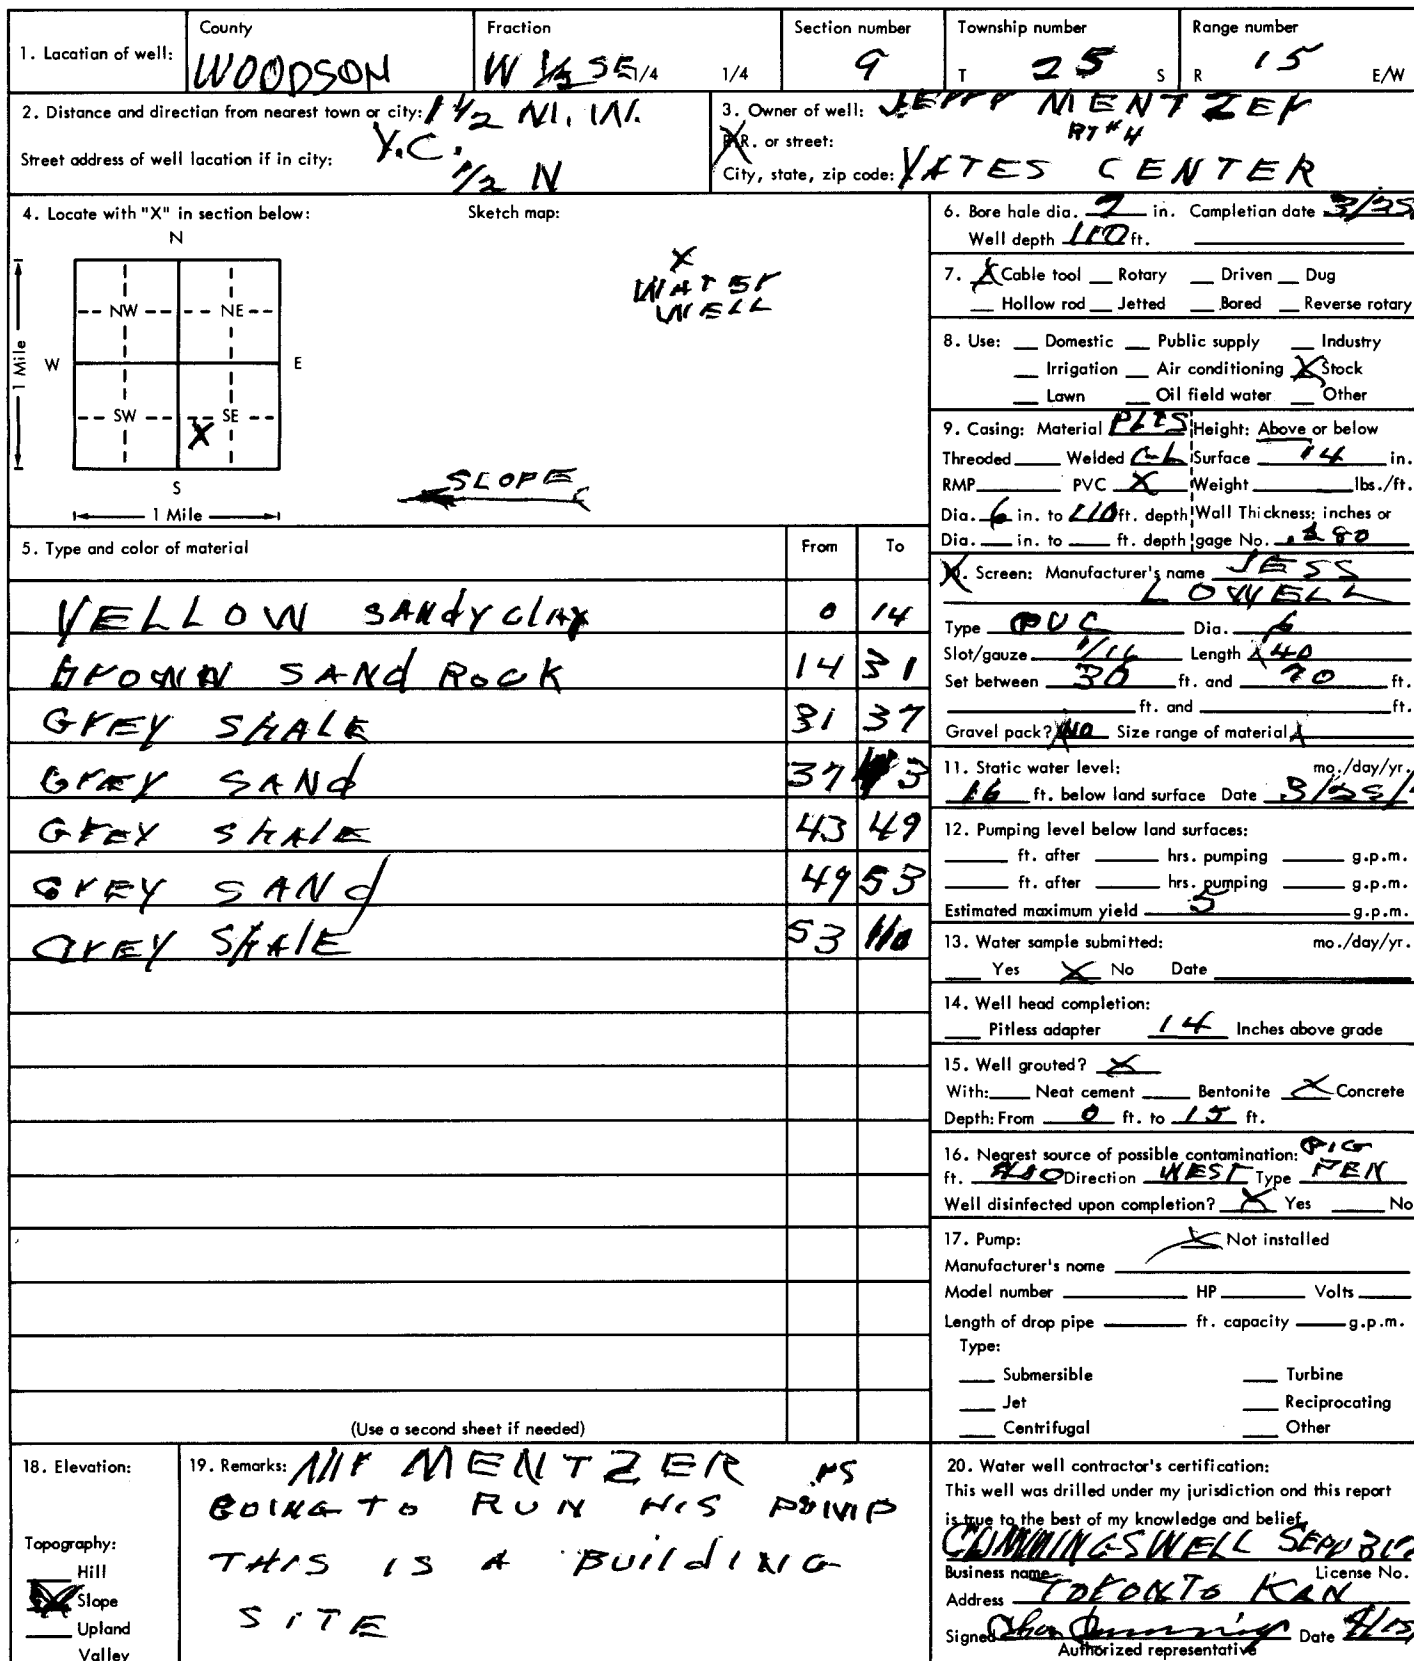 1. Location of well:
County
WOODSON
Fraction
W 1/2 SE 1/4 1/4
Section number
9
Township number
T 25 S
Range number
R 15 E/W
2. Distance and direction from nearest town or city: 1 1/2
Y.C.
Street address of well location if in city: 1/2 N
3. Owner of well: JERRY MENTZER
R.R. or street: RT #4
City, state, zip code: YATES CENTER
4. Locate with "X" in section below:
Sketch map:
N
NW NE
W E
SW SE
X
S
1 Mile
1 Mile
X
WATER
WELL
SLOPE
5. Type and color of material From To
YELLOW SANDY CLAY 0 14
BROWN SAND ROCK 14 31
GREY SHALE 31 37
GREY SAND 37 43
GREY SHALE 43 49
GREY SAND 49 53
GREY SHALE 53 110
(Use a second sheet if needed)
6. Bore hole dia. in. Completion date 3/25
Well depth 110 ft.
7. X Cable tool __ Rotary __ Driven __ Dug
__ Hollow rod __ Jetted __ Bored __ Reverse rotary
8. Use: __ Domestic __ Public supply __ Industry
__ Irrigation __ Air conditioning X Stock
__ Lawn __ Oil field water __ Other
9. Casing: Material Height: Above or below
Threaded ____ Welded Surface 14 in.
RMP ____ PVC X Weight ____ lbs./ft.
Dia. 6 in. to 110 ft. depth Wall Thickness: inches or
Dia. __ in. to __ ft. depth gage No.
10. Screen: Manufacturer's name JESS
LOWELL
Type PVC Dia. 6
Slot/gauze 1/16 Length 40
Set between 30 ft. and 70 ft.
____ ft. and ____ ft.
Gravel pack? NO Size range of material
11. Static water level: mo./day/yr.
16 ft. below land surface Date 3/25/
12. Pumping level below land surfaces:
____ ft. after ____ hrs. pumping ____ g.p.m.
____ ft. after ____ hrs. pumping ____ g.p.m.
Estimated maximum yield 5 g.p.m.
13. Water sample submitted: mo./day/yr.
__ Yes X No Date
14. Well head completion:
__ Pitless adapter 14 Inches above grade
15. Well grouted? X
With: __ Neat cement __ Bentonite X Concrete
Depth: From 0 ft. to 15 ft.
16. Nearest source of possible contamination: PIG
ft. Direction WEST Type PEN
Well disinfected upon completion? X Yes __ No
17. Pump: X Not installed
Manufacturer's name
Model number ____ HP ____ Volts ____
Length of drop pipe ____ ft. capacity ____ g.p.m.
Type:
__ Submersible __ Turbine
__ Jet __ Reciprocating
__ Centrifugal __ Other
18. Elevation:
Topography:
__ Hill
X Slope
__ Upland
Valley
19. Remarks: MR MENTZER IS
GOING TO RUN HIS PUMP
THIS IS A BUILDING
SITE
20. Water well contractor's certification:
This well was drilled under my jurisdiction and this report
is true to the best of my knowledge and belief.
CUMMINGS WELL
Business name License No.
Address TORONTO KAN
Signed Cummings Date
Authorized representative